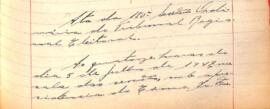 Ata da 180ª Sessão Ordi-
nária do Tribunal Regio-
nal Eleitoral.
Às quatorze horas do
dia 5 de julho de 1947 na
sala das sessões, sob a pre-
sidencia do Exmo.